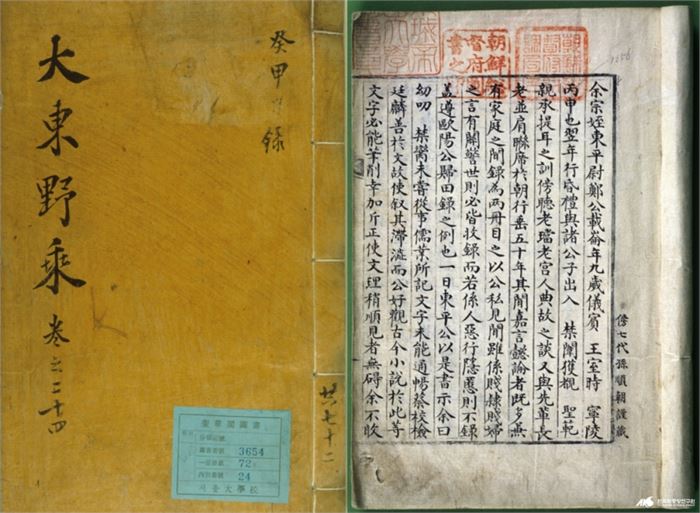 癸甲日錄
大東野乘 卷之二十四
共七十二
奎章閣圖書
圖書番號 3654
72
24
서울大學校
朝鮮總督府圖書之印
余宗姪東平尉鄭公載崙年九歲儀賓 王室時 寧陵
丙申也翌年行昏禮與諸公子出入 禁闥獲覩 聖範
親承提耳之訓傍聽老璫老宮人典故之談又與先軰長
老並肩聯席於朝行垂五十年其聞嘉言懿論者旣多兼
有家庭之聞錄為兩冊目之以公私見聞雖係賤隸賤婦
之言有關警世則必皆收錄而若係人惡行隱慝則不錄
盖遵歐陽公歸田錄之例也一日東平公以是書示余曰
幼叨 禁臠未嘗從事儒業所記文字未能通暢蔡校檢
廷麟善於文故使叙其滯澁而公好觀古今小說於此等
文字必能筆削幸加斤正使文理稍順見者無碍余不敢
七代孫順朝謹藏